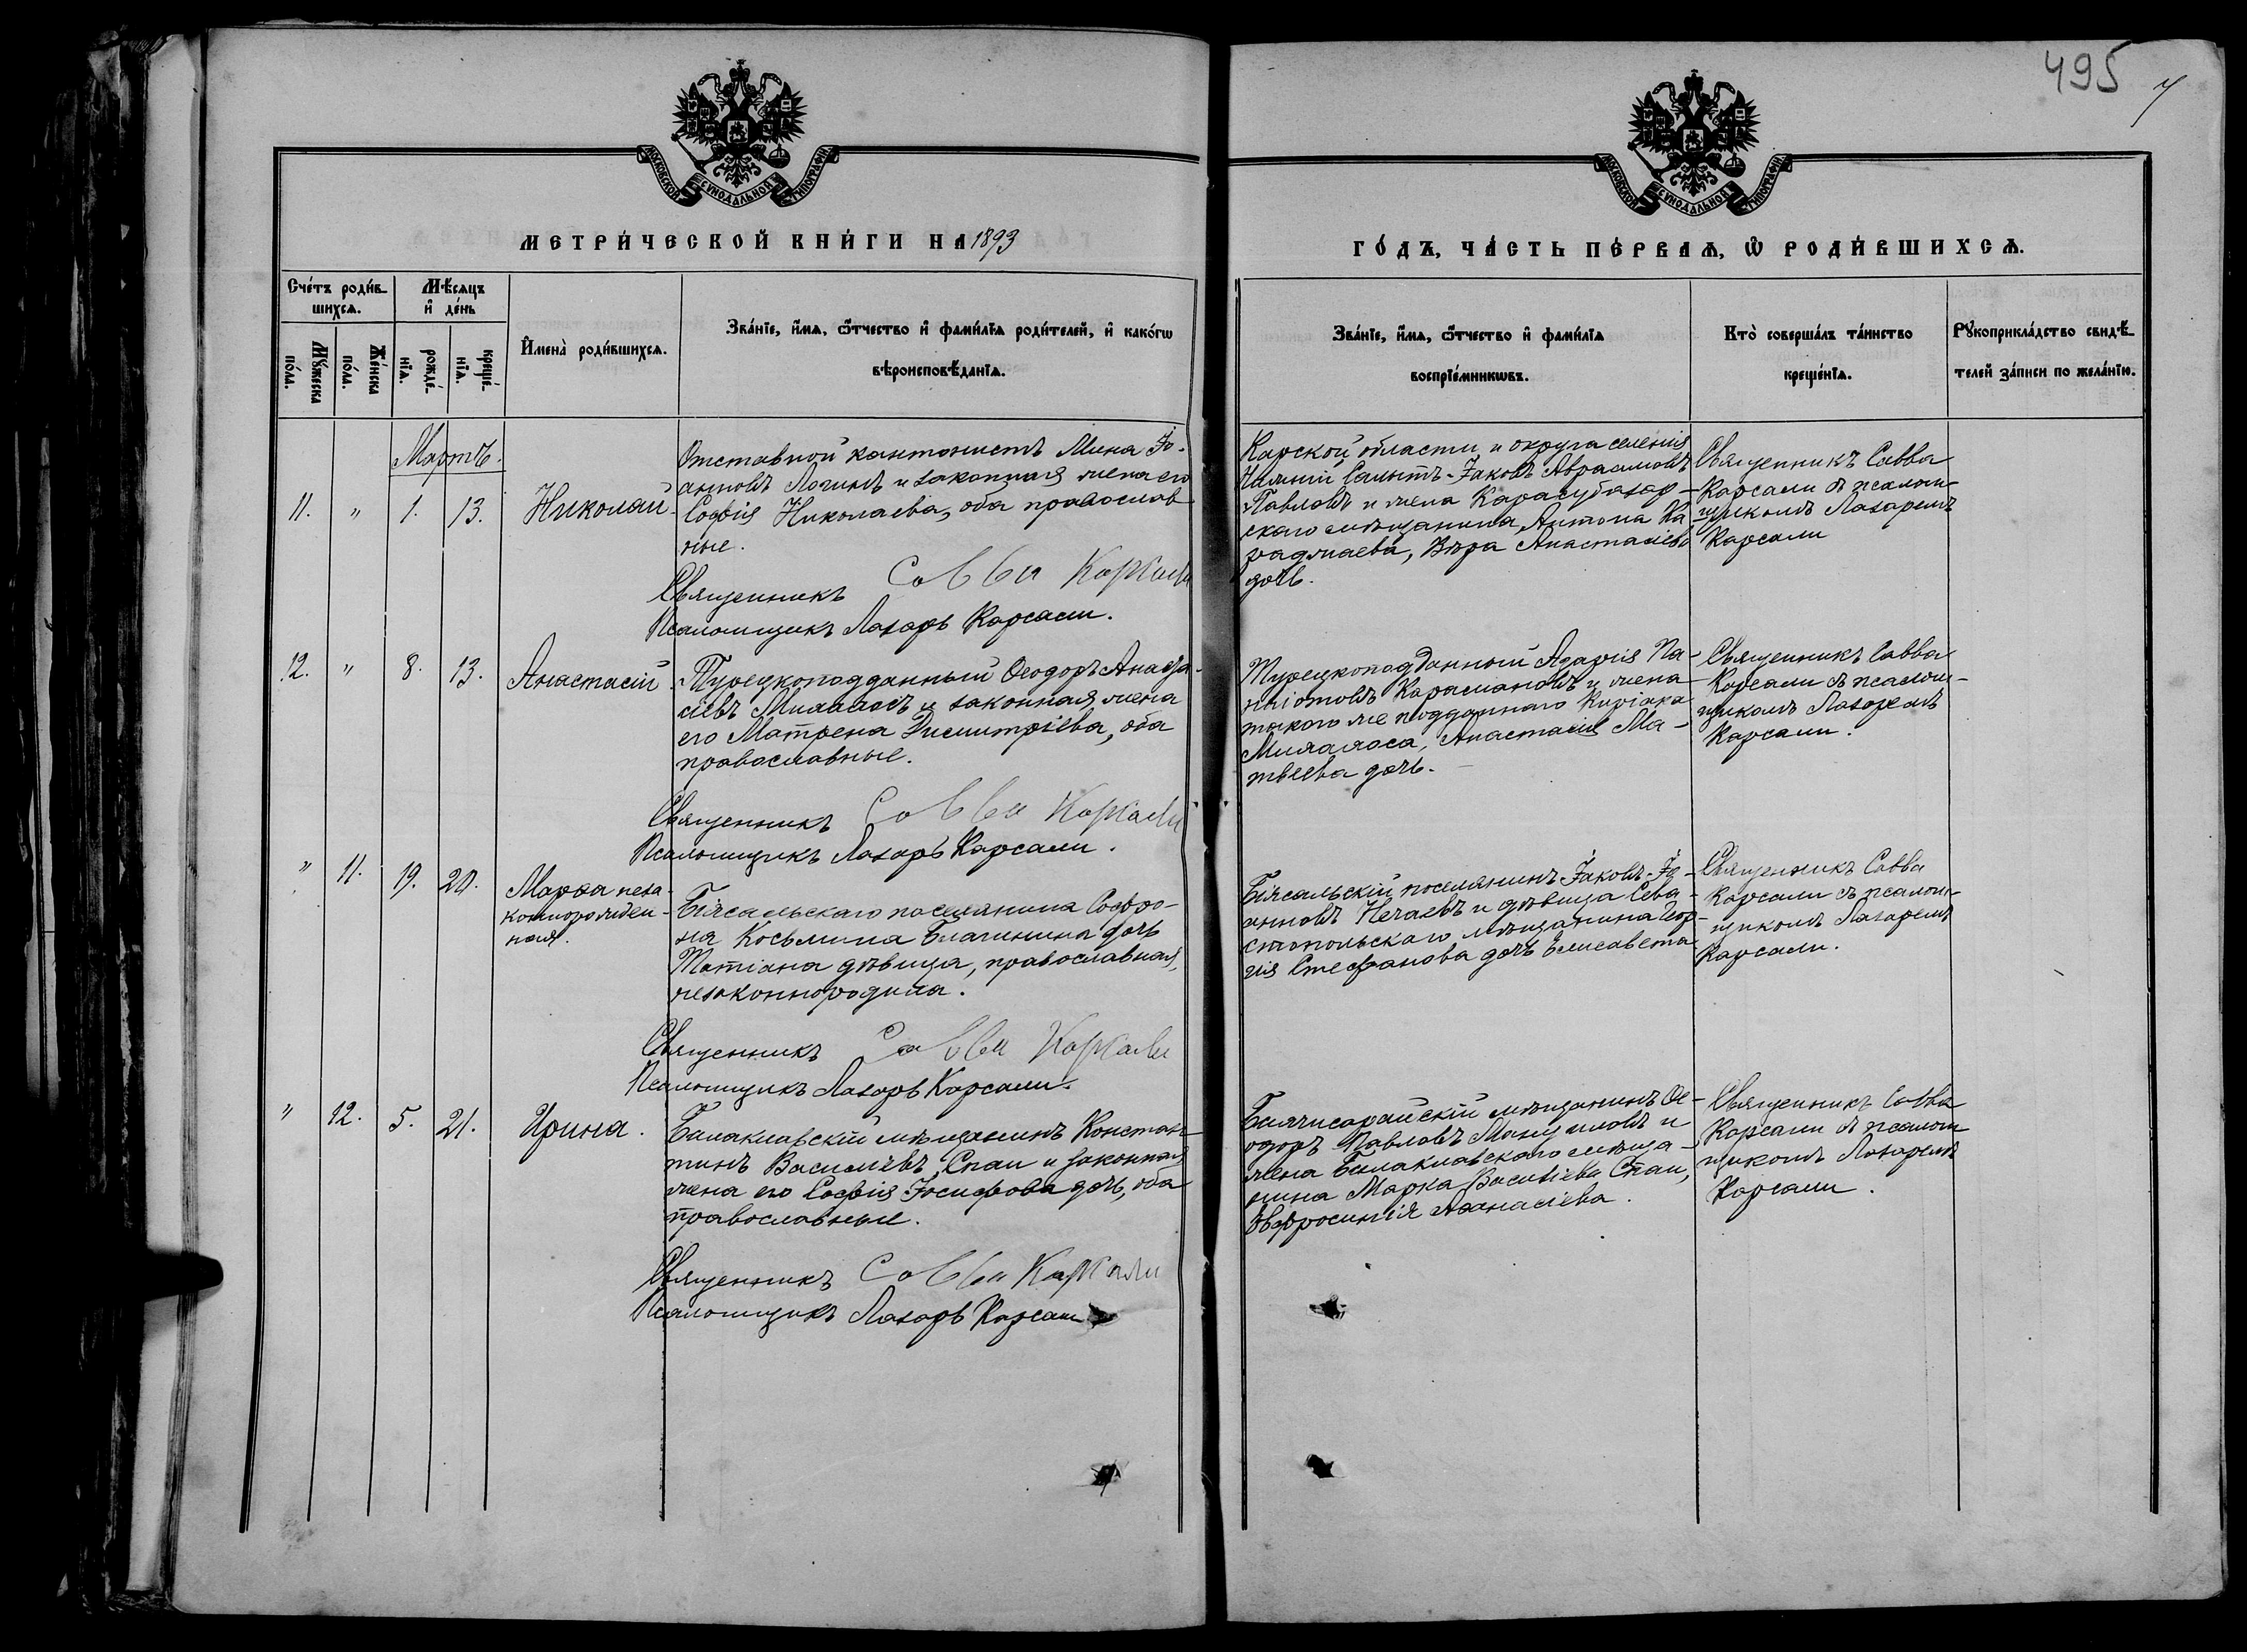 495
МОСКОВСКОЙ СѴНОДАЛЬНОЙ ТИПОГРАФІИ
МОСКОВСКОЙ СѴНОДАЛЬНОЙ ТИПОГРАФІИ
МЕТРИ́ЧЕСКОЙ КНИ́ГИ НА 1893
ГО́ДЪ, ЧА́СТЬ ПЕ́РВАѦ, Ѽ РОДИ́ВШИХСѦ.
Сче́тъ роди́в-
шихсѧ.
Мѣ́сѧцъ
и҆ де́нь
Мꙋ́жеска
по́ла.
Же́нска
по́ла.
рожде́-
нїѧ.
креще́-
нїѧ.
И҆мена̀ роди́вшихсѧ.
Зва́нїе, и҆́мѧ, ѻ҆́тчество и҆ фами́лїѧ роди́телей, и҆ како́гѡ
вѣроисповѣ́данїѧ.
Зва́нїе, и҆́мѧ, ѻ҆́тчество и҆ фами́лїѧ
воспрїе́мникѡвъ.
Кто̀ соверша́лъ та́инство
креще́нїѧ.
Рꙋкоприкла́дство свидѣ́-
телей за́писи по жела́нїю.
Мартъ.
11. " 1. 13. Николай
Отставной кантонистъ Мина Іо-
анновъ Логинъ и законная жена его
Софія Николаева, оба православ-
ные.
Священникъ Савва Карсали
Псаломщикъ Лазарь Карсали.
Карской области и округа селенія
Нижній Іаковъ Авраамовъ
Павловъ и жена Карасубазар-
скаго мѣщанина Антона Ка-
Вѣра Анастасіева
дочь.
Священникъ Савва
Карсали съ псалом-
щикомъ Лазаремъ
Карсали
12. " 8. 13. Анастасій.
Турецкоподданный Ѳеодоръ Анаста-
сіевъ и законная жена
его Матрена Димитріева, оба
православные.
Священникъ Савва Карсали
Псаломщикъ Лазарь Карсали.
Турецкоподданный Азарія Па-
наіотовъ Карамановъ и жена
такого же подданнаго Киріака
Анастасія Ма-
твѣева дочь.
Священникъ Савва
Карсали съ псалом-
щикомъ Лазаремъ
Карсали.
" 11. 19. 20. Марѳа неза-
коннорожден-
ная.
Біясальскаго поселянина Софро-
нія Косьмина дочь
Татіана дѣвица, православная,
незаконнородила.
Священникъ Савва Карсали
Псаломщикъ Лазарь Карсали.
Біясальскій поселянинъ Іаковъ Іо-
анновъ Нечаевъ и дѣвица Сева-
стопольскаго мѣщанина Геор-
гія Стефанова дочь Елисавета
Священникъ Савва
Карсали съ псалом-
щикомъ Лазаремъ
Карсали.
" 12. 5. 21. Ирина.
Балаклавскій мѣщанинъ Констан-
тинъ Василіевъ Спаи и законная
жена его Софія Іосифова дочь, оба
православные.
Священникъ Савва Карсали
Псаломщикъ Лазарь Карсали
Бахчисарайскій мѣщанинъ Ѳе-
одоръ Павловъ Мануиловъ и
жена Балаклавскаго мѣща-
нина Марка Василіева Спаи,
Евфросинія Аѳанасіева.
Священникъ Савва
Карсали съ псалом-
щикомъ Лазаремъ
Карсали.